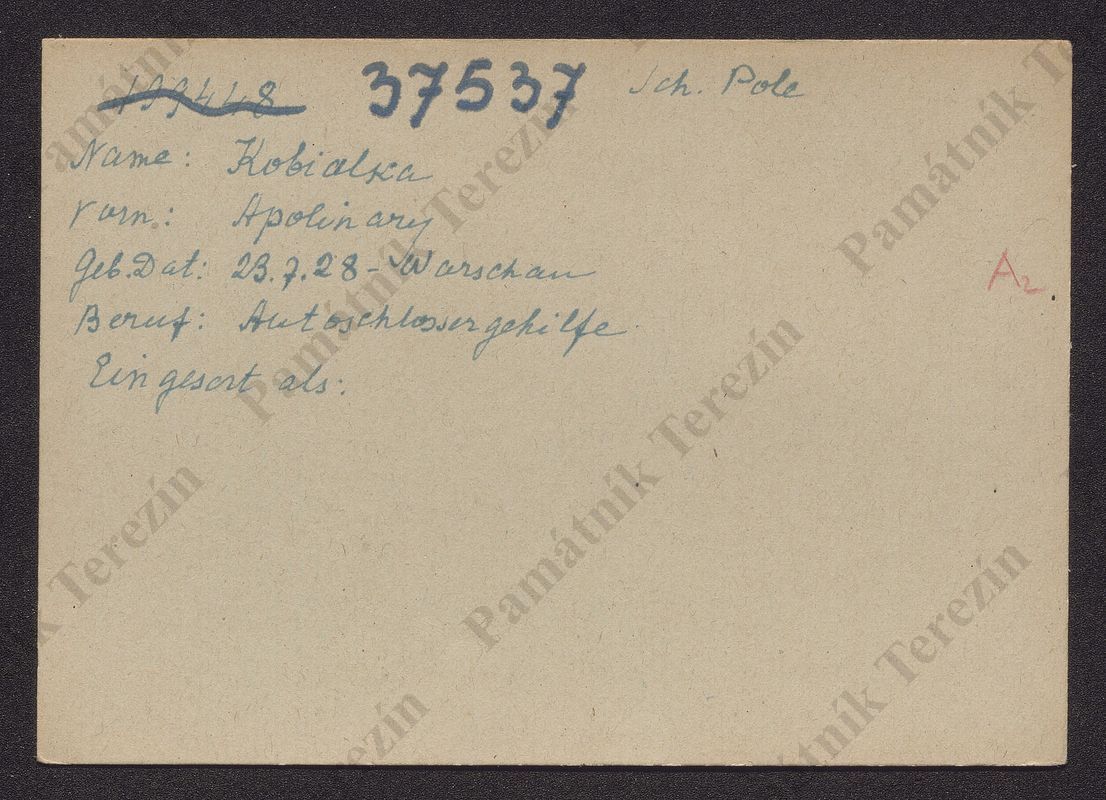 199448 37537 Sch. Pole
Name: Kobialka
Vorn.: Apolinary
Geb. Dat: 23.7.28 - Warschau
A2
Beruf: Autoschlossergehilfe
Eingesert als:
Památník Terezín
Památník Terezín
Památník Terezín
Památník Terezín
Památník Terezín